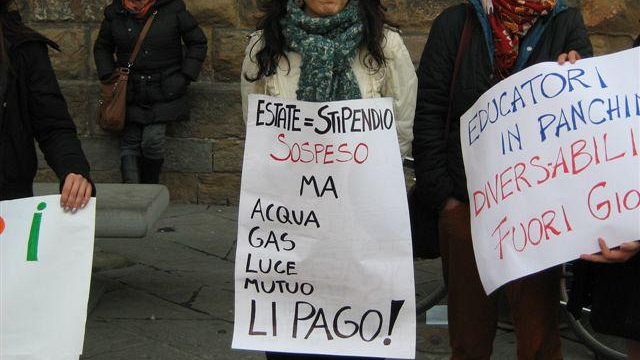 ESTATE = STIPENDIO
SOSPESO
MA
ACQUA
GAS
LUCE
MUTUO
LI PAGO!
EDUCATORI
IN PANCHIN
DIVERS-ABILI
FUORI GIO
i